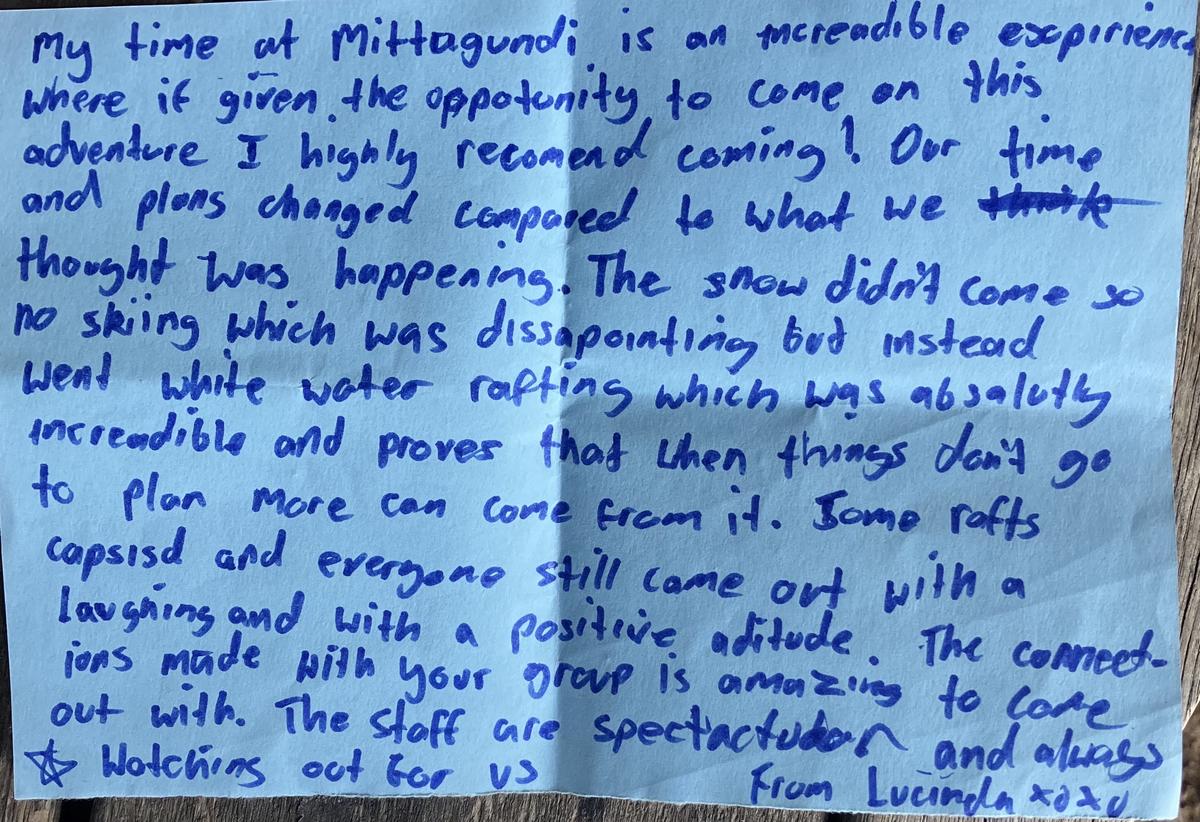 My time at Mittagundi is an increadible expirienc
where if given the oppotunity to come on this
adventure I highly recomend coming! Our time
and plans changed compared to what we think
thought was happening. The snow didn't come so
no skiing which was dissapointing but instead
went white water rafting which was absalutly
increadible and proves that when things don't go
to plan more can come from it. Some rafts
capsisd and everyone still came out with a
laughing and with a positive aditude. The connect-
ions made with your group is amazing to come
out with. The staff are spectactular and always
☆ Watching out for us
From Lucinda xoxo